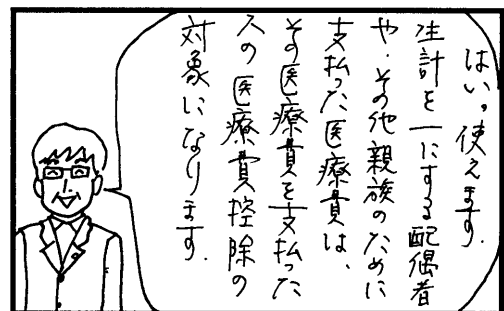 はい。使えます.
生計を一にする配偶者
や.その他親族のために
支払った医療費は、
その医療費を支払った
人の医療費控除の
対象になります.